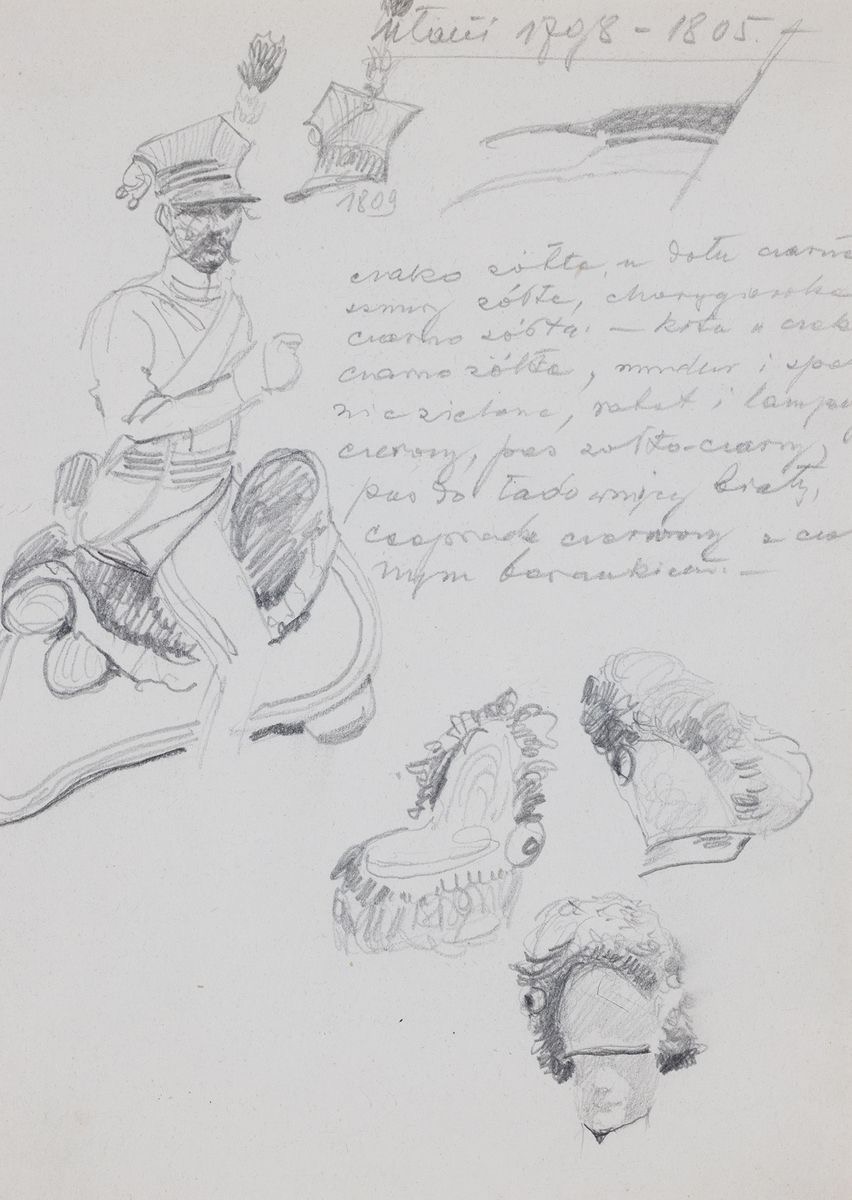 Ułani 1798 - 1805.
1809
czako żółte, u dołu czarne
sznury żółte, chorągiewka
czarno żółta. — kita u czak
czarno żółta, mundur i spo
nie zielone, rabat i lampas
czerwony, pas żółto-czarny,
pas do ładownicy biały,
czaprak czerwony z cza
nym barankiem. —